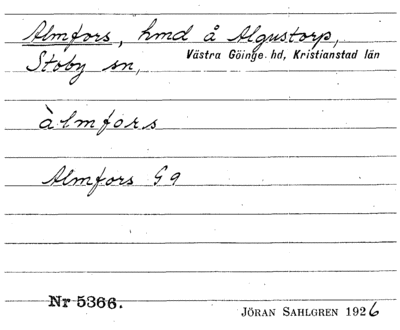 Almfors, hmd å Algustorp,
Stoby sn, Västra Göinge hd, Kristianstad län
àlmfors
Almfors G 9
Nr 5366.
JÖRAN SAHLGREN 1926